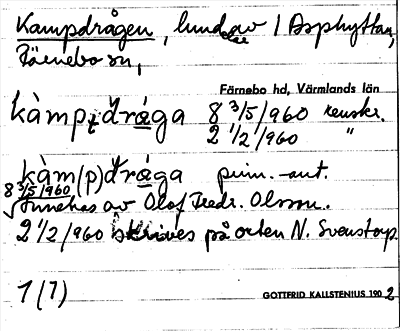 Kampdrågen, lund av / Asphyttan,
Färnebo sn,
Färnebo hd, Värmlands län
kàmpdråga 8 3/5 1960 kenskr.
2 1/2 1960 "
kàm(p)dråga prim. -aut.
8 3/5 1960
√ Finnehas av Olof Fredr. Olsson.
2 1/2 1960 skrives på orten N. Svenstorp.
1(7)
GOTTFRID KALLSTENIUS 1902